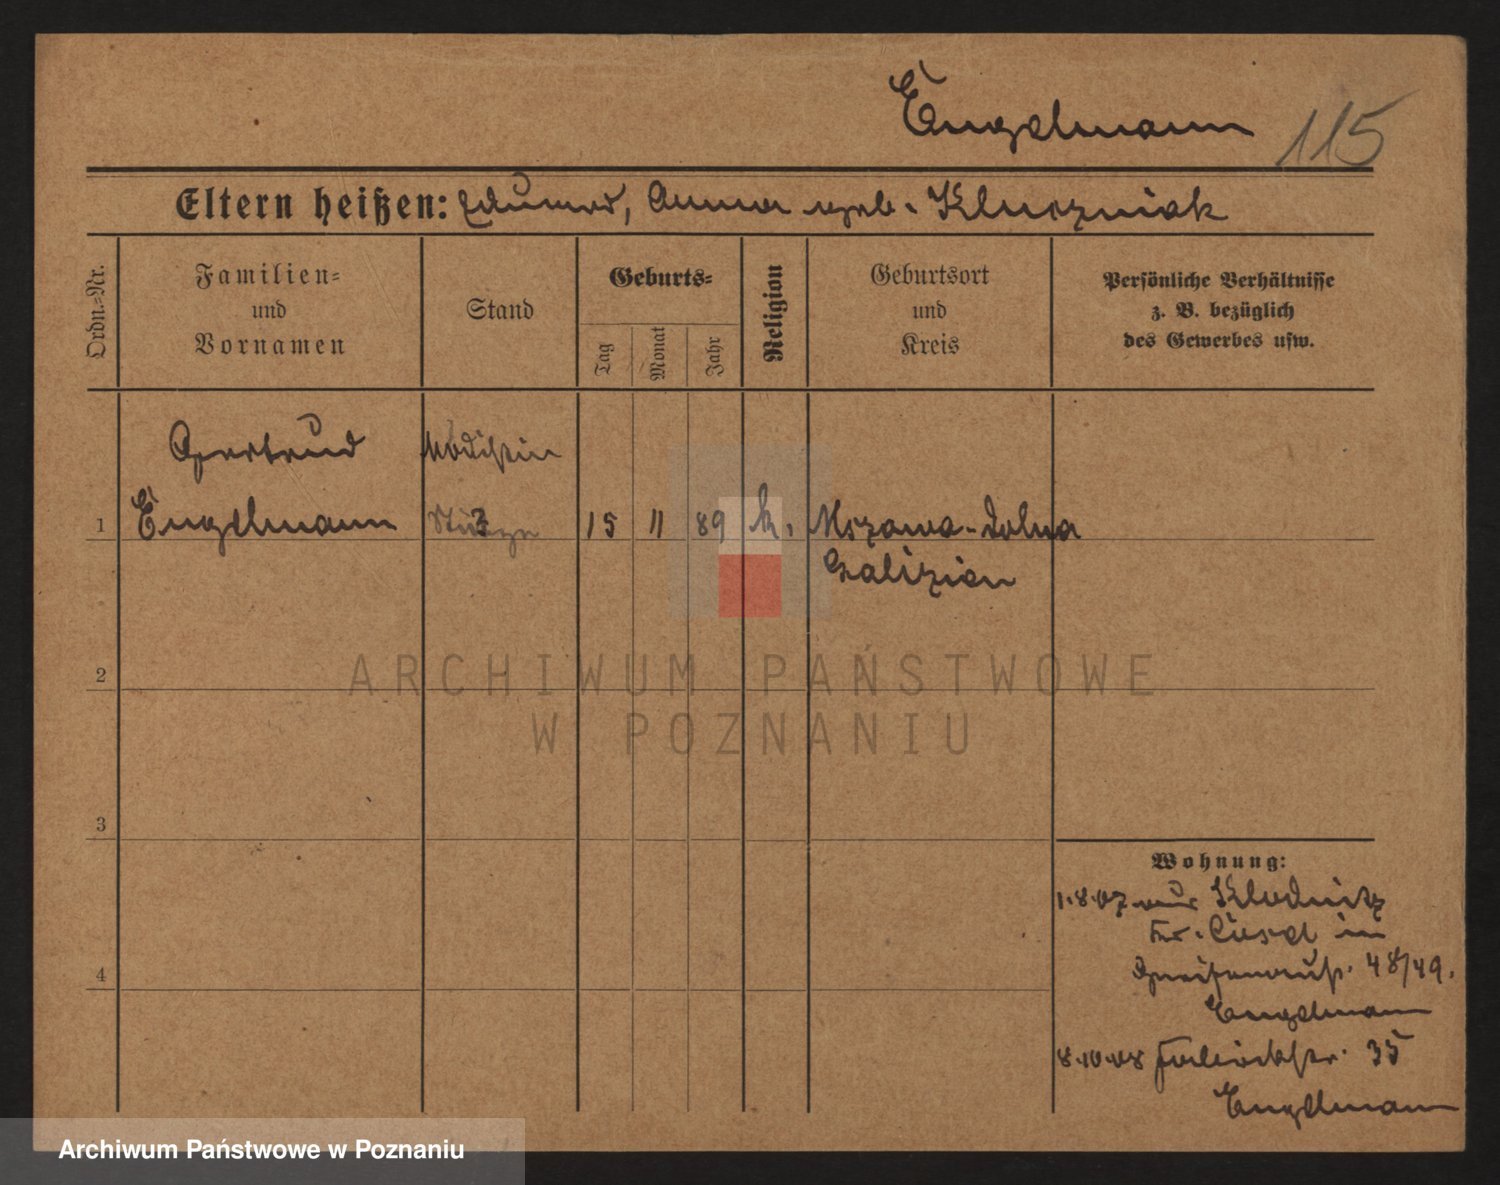 Engelmann 115
Eltern heißen: Eduard, Anna geb. Kluczniok
Ordn.-Nr.
Familien-
und
Vornamen
Stand
Geburts-
Tag
Monat
Jahr
Religion
Geburtsort
und
Kreis
Persönliche Verhältnisse
z. B. bezüglich
des Gewerbes usw.
Gertrud Modistin
1 Engelmann Stütze 15 11 89 k. Mszana-Dolna
Galizien
2
3
4
Wohnung:
1.8.07 aus Klodnitz
Kr. Cosel in
48/49.
Engelmann
8.10.08 35
Engelmann
ARCHIWUM PAŃSTWOWE
W POZNANIU
Archiwum Państwowe w Poznaniu